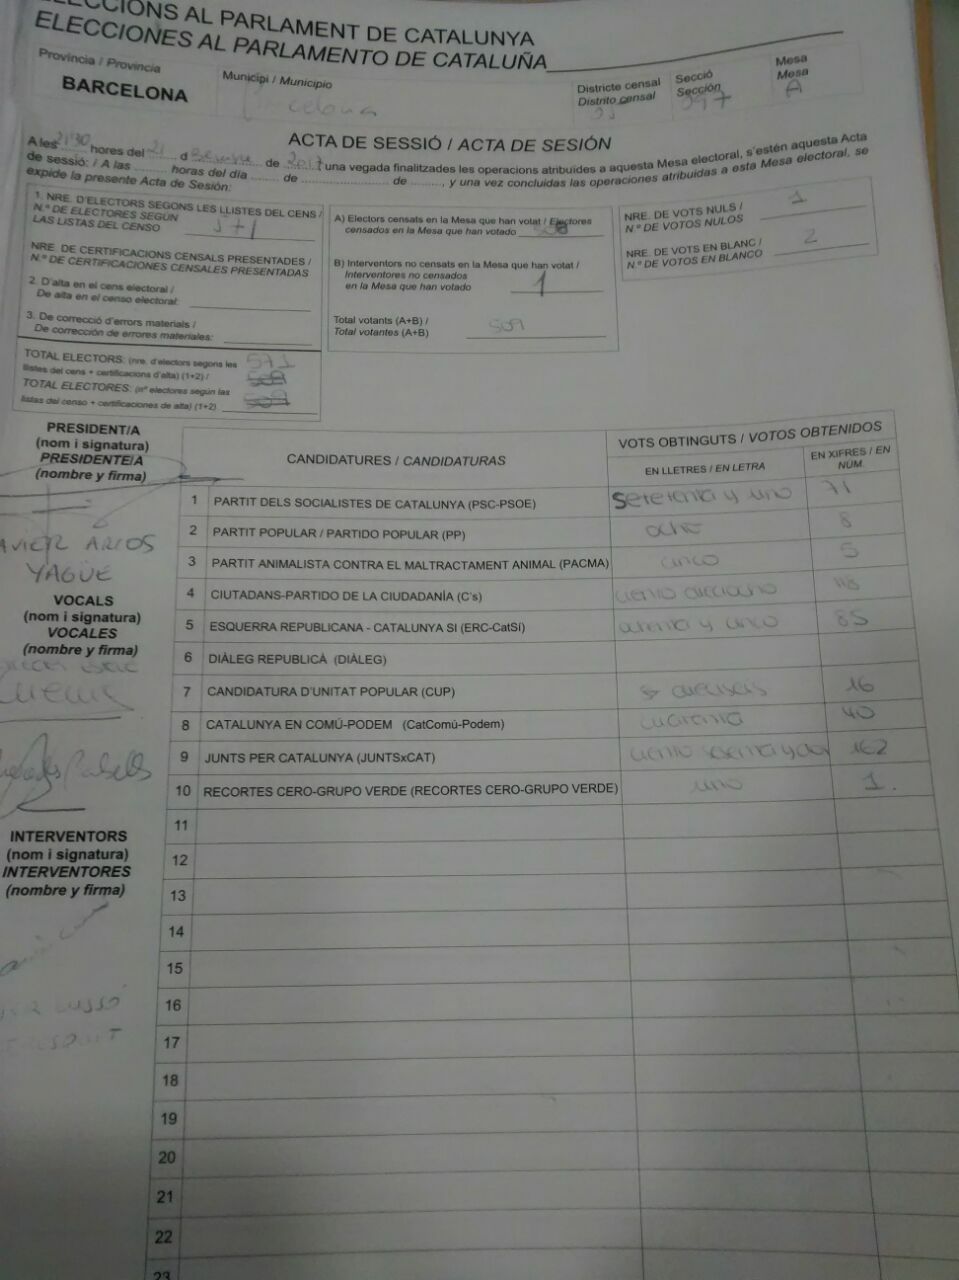 ELECCIONS AL PARLAMENT DE CATALUNYA
ELECCIONES AL PARLAMENTO DE CATALUÑA
Província / Provincia
BARCELONA
Municipi / Municipio
Barcelona
Districte censal
Distrito censal
Secció
Sección
097
Mesa
Mesa
A
ACTA DE SESSIÓ / ACTA DE SESIÓN
A les 21:30 hores del 21 d de 2017 una vegada finalitzades les operacions atribuïdes a aquesta Mesa electoral, s'estén aquesta Acta
de sessió: / A las ........ horas del día ........ de ........................ de ........, y una vez concluidas las operaciones atribuidas a esta Mesa electoral, se
expide la presente Acta de Sesión:
1. NRE. D'ELECTORS SEGONS LES LLISTES DEL CENS /
N.º DE ELECTORES SEGÚN
LAS LISTAS DEL CENSO
571
NRE. DE CERTIFICACIONS CENSALS PRESENTADES /
N.º DE CERTIFICACIONES CENSALES PRESENTADAS
2. D'alta en el cens electoral /
De alta en el censo electoral:
3. De correcció d'errors materials /
De corrección de errores materiales:
TOTAL ELECTORS: (nre. d'electors segons les
llistes del cens + certificacions d'alta) (1+2) /
TOTAL ELECTORES: (nº electores según las
listas del censo + certificaciones de alta) (1+2)
571
508
509
A) Electors censats en la Mesa que han votat / Electores
censados en la Mesa que han votado 508
B) Interventors no censats en la Mesa que han votat /
Interventores no censados
en la Mesa que han votado 1
Total votants (A+B) /
Total votantes (A+B)
509
NRE. DE VOTS NULS /
N.º DE VOTOS NULOS
1
NRE. DE VOTS EN BLANC /
N.º DE VOTOS EN BLANCO
2
PRESIDENT/A
(nom i signatura)
PRESIDENTE/A
(nombre y firma)
AVIER ARCOS
YAGÜE
VOCALS
(nom i signatura)
VOCALES
(nombre y firma)
INTERVENTORS
(nom i signatura)
INTERVENTORES
(nombre y firma)
CANDIDATURES / CANDIDATURAS
VOTS OBTINGUTS / VOTOS OBTENIDOS
EN LLETRES / EN LETRA
EN XIFRES / EN
NÚM.
1 PARTIT DELS SOCIALISTES DE CATALUNYA (PSC-PSOE) setetenta y uno 71
2 PARTIT POPULAR / PARTIDO POPULAR (PP) ocho 8
3 PARTIT ANIMALISTA CONTRA EL MALTRACTAMENT ANIMAL (PACMA) cinco 5
4 CIUTADANS-PARTIDO DE LA CIUDADANÍA (C's) ciento dieciocho 118
5 ESQUERRA REPUBLICANA - CATALUNYA SI (ERC-CatSí) ochenta y cinco 85
6 DIÀLEG REPUBLICÀ (DIÀLEG)
7 CANDIDATURA D'UNITAT POPULAR (CUP) dieciseis 16
8 CATALUNYA EN COMÚ-PODEM (CatComú-Podem) cuarenta 40
9 JUNTS PER CATALUNYA (JUNTSxCAT) ciento sesenta y dos 162
10 RECORTES CERO-GRUPO VERDE (RECORTES CERO-GRUPO VERDE) uno 1.
11
12
13
14
15
16
17
18
19
20
21
22
23